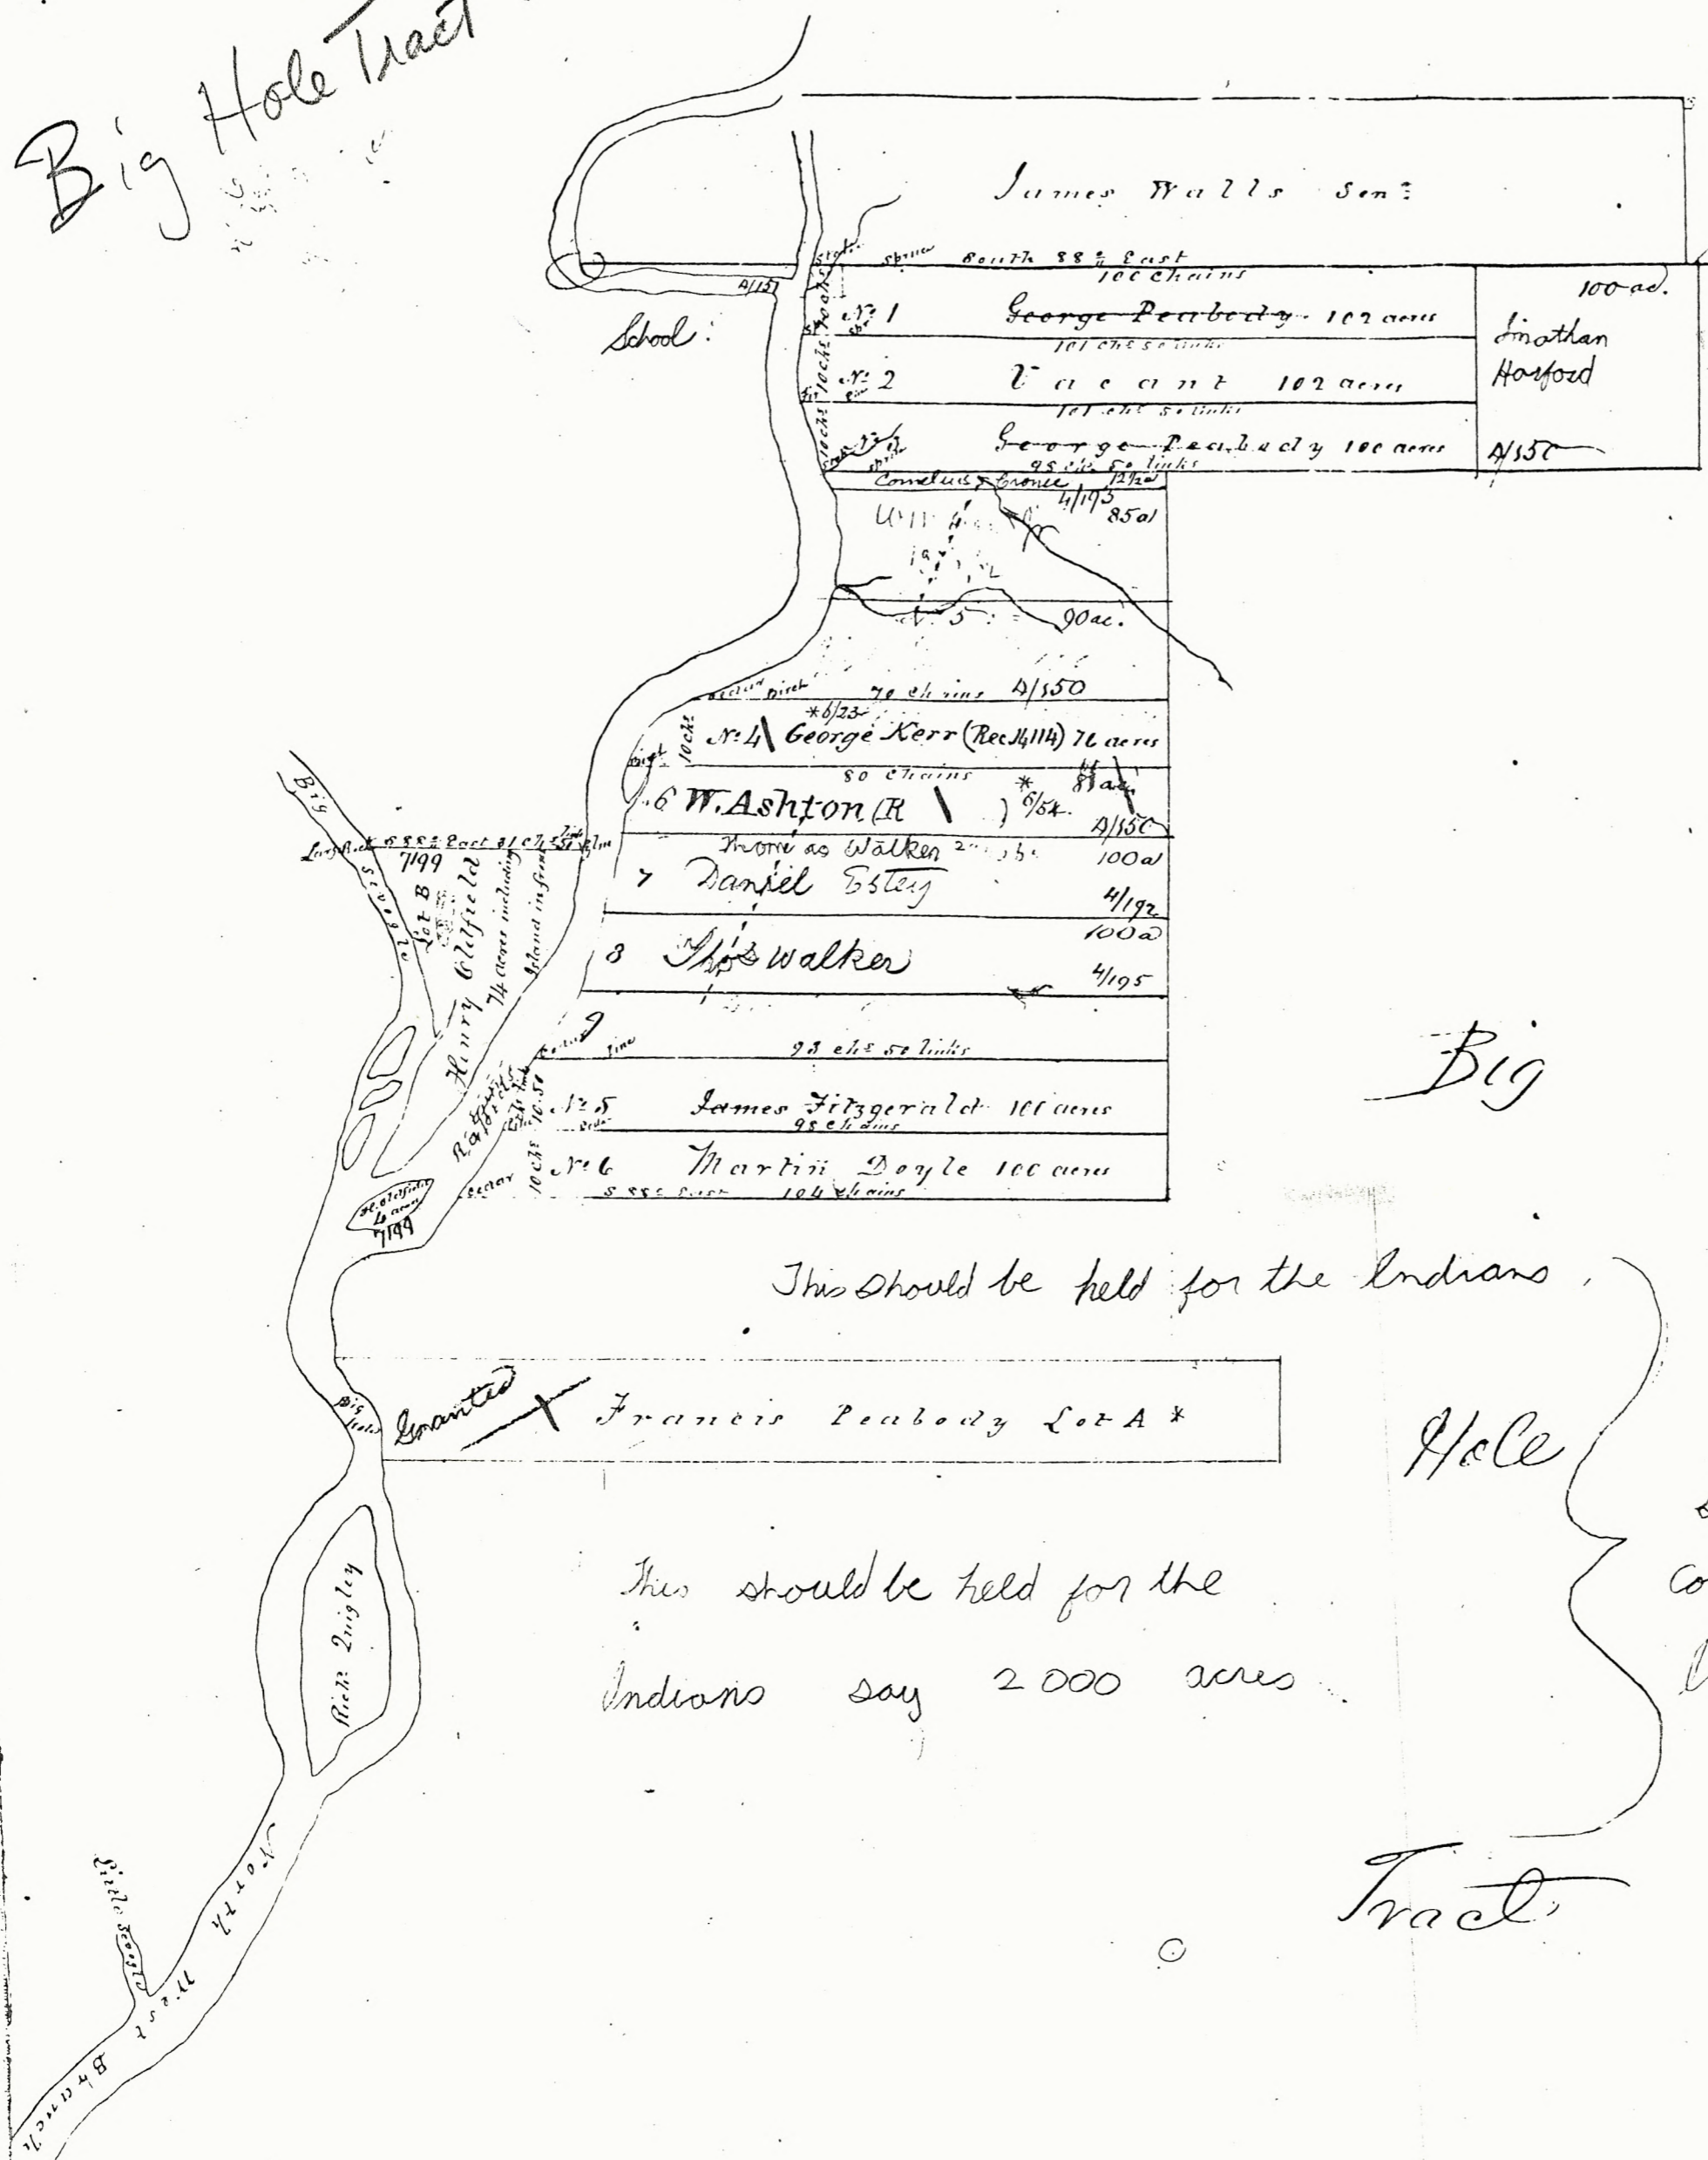 Big Hole Tract
James Walls Senr
Spruce South 88° East
100 Chains
A/157
School:
No 1 George Peabody 102 acres
101 chs 50 links
No 2 Vacant 102 acres
101 chs 50 links
George Peabody 100 acres
98 chs 50 links
10 chs
10 chs
100 ac.
Jonathan
Harford
A/150
Cornelius 12½a
4/193
85a
5 90 ac.
Birch 70 chains A/150
*6/23
10 chs
No 4 George Kerr (Rec 14114) 76 acres
80 chains
6 W. Ashton (R ) * 6/54
81 ac
A/150
Thomas Walker 100a
7 Daniel Estey
4/192
100a
8 Thos Walker
4/195
9
Pine 93 chs 50 links
No 5 James Fitzgerald 100 acres
98 chains
10 chs
No 6 Martin Doyle 100 acres
Cedar S 88° East 104 chains
Big
Sevogle
S 88° East 81 chs 50 links Elm
7199
Lot B
Henry Oldfield
74 acres including
Island in front
Rapids
H. Oldfield
4 acres
7199
Big
This should be held for the Indians
Big
Hole
Granted Francis Peabody Lot A *
Hole
This should be held for the
Indians say 2000 acres
Richd Quigley
Tract
Little Sevogle
North
West
Branch
co